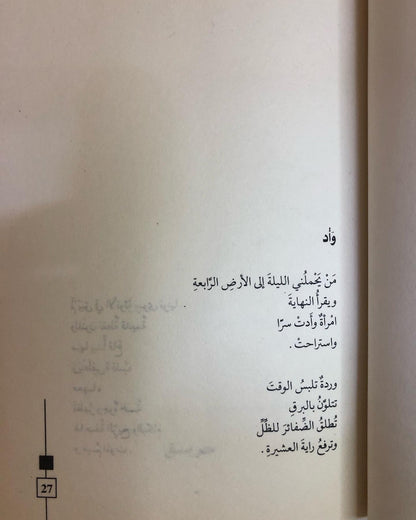 وَأد
مَنْ يَحْملُني الليلةَ إلى الأرضِ الرّابعةِ
ويقرأُ النهايةَ
امْرأةٌ وَأدتْ سرّا
واستراحتْ .
وردةٌ تلبسُ الوقتَ
تتلوّنُ بالبرقِ
تُطلقُ الضّفائرَ للظلِّ
وترفعُ رايةَ العشيرةِ .
27